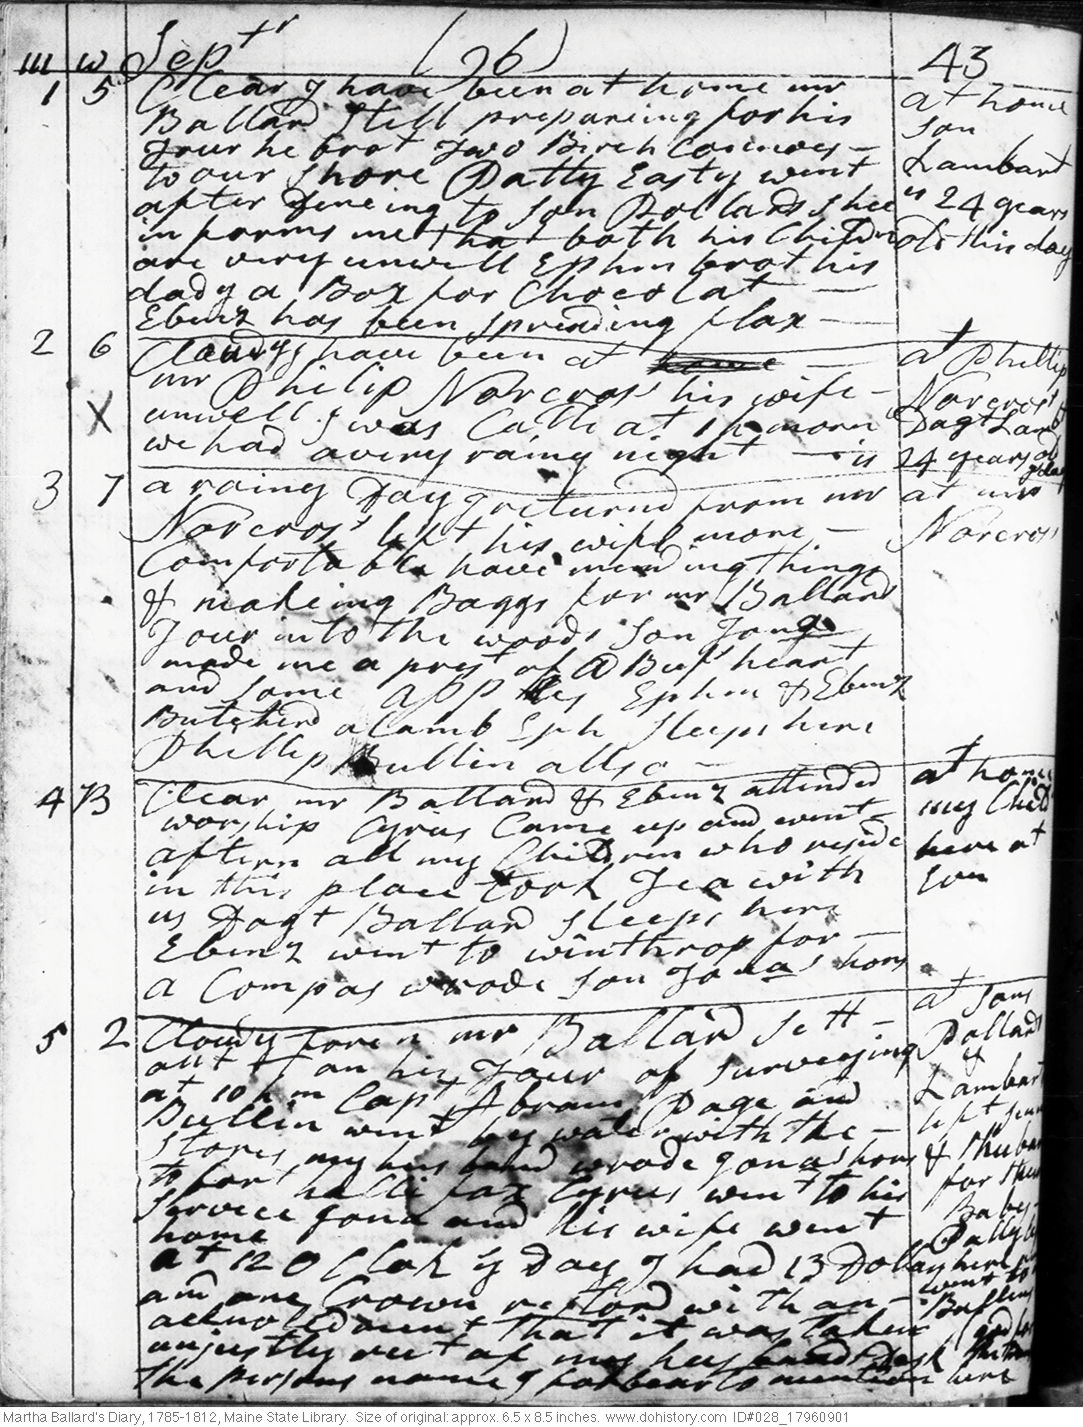 m w Septr (96) 43
1 5 Clear I have been at home mr
Ballard still prepareing for his
Tour he brot Two Birch Connoes
to our shore Patty Easty went
after dineing to son Bollards shee
informs me that both his Childn
are very unwell Ephm brot his
dady a Box for Chocolat
Ebenz has been spreading flax
at home
son
Lambart
is 24 years
old this day
2 6 Cloudy I have been at home
mr Philip Norcross his wife
unwell I was Calld at 1 h morn
we had a very rainy night is
X
at Phillip
Norcross
Dagt Lambt
24 years old
3 7 a rainy Day I returnd from mr
Norcross' left his wife more
Comfortable have mending things
& makeing Baggs for mr Ballard
Tour into the woods son Jona
made me a prest of a Beef heart
and some apples Ephm & Ebenz
Butcherd a Lamb Eph sleeps here
Phillip Bullin allso
at mr
Norcross
4 B Clear mr Ballard & Ebenz attended
worship Cyrus Came up and went
aftern all my Children who reside
in this place took Tea with
us Dagt Ballard sleeps here
Ebenz went to winthrop for
a Compas wrode son Jonas hors
at home
my Child
here at
son
5 2 Cloudy foren mr Ballard sett
out on his Tour of surveying
at 10 h m Capt Abram Page and
Bullin went by water with the
stores my husband wrode Jonas hors
to fort hallifax Cyrus went to his
service Jona and his wife went
home
at 12 O Clok y Day I had 13 Dollars
and one Crown restord with an
acknoledment that it was taken
unjustly out of my husbands Desk
the persons name I forbear to mention here
at sons
Pollards
&
Lambart
left
&
for their
Babes
Dolly
here
went to
Bullins